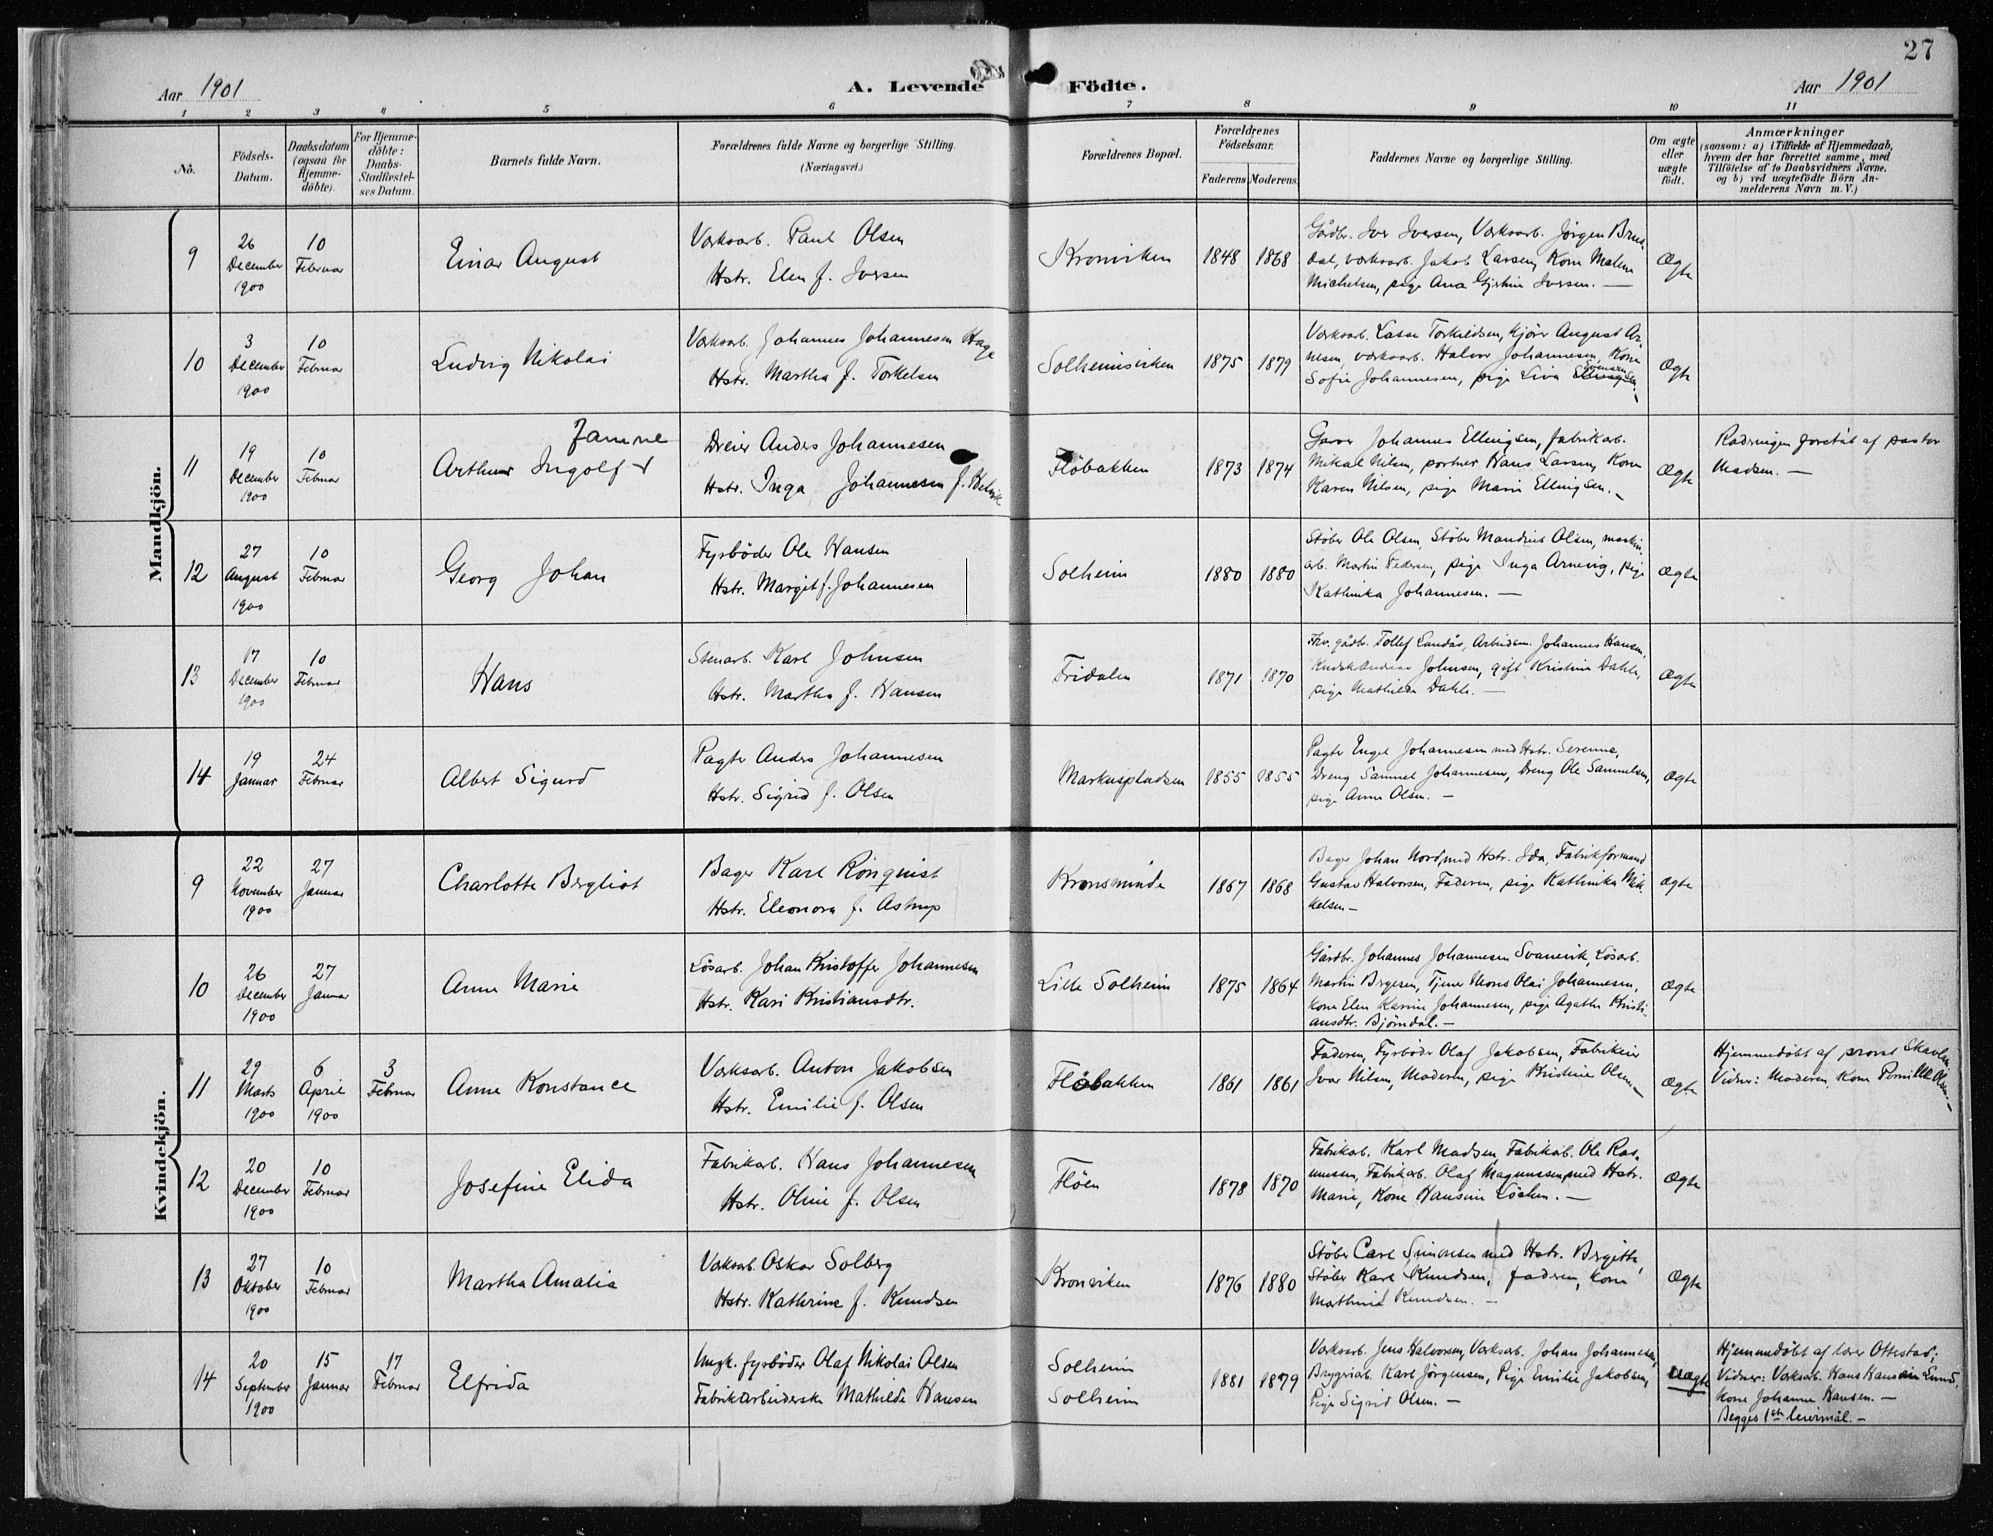 27
Aar 1901
A. Levende Födte.
Aar 1901
1 2 3 4 5 6 7 8 9 10 11
No.
Födsels-
Datum.
Daabsdatum
(ogsaa for
Hjemme-
döbte).
For Hjemme-
döbte:
Daabs-
Stadfæstel-
ses Datum.
Barnets fulde Navn.
Forældrenes fulde Navne og borgerlige Stilling.
(Næringsvei.)
Forældrenes Bopæl.
Forældrenes
Födselsaar.
Faderens Moderens.
Faddernes Navne og borgerlig Stilling.
Om ægte
eller
uægte
födt.
Anmærkninger
(saasom: a) i Tilfælde af Hjemmedaab,
hvem der har forrettet samme, med
Tilföielse af to Daabsvidners Navne,
og b) ved uægtefödte Börn An-
melderens Navn m. V.)
Mandkjön.
9
26
December
1900
10
Februar
Einar August
Værksarb. Paul Olsen
Hstr. Elen f. Iversen
Kronviken
1848
1868
Gårdbr. Iver Iversen, Værksarb. Jörgen Brus-
dal, værksarb. Jakob Larsen, Kone Malene
Michelsen, pige Ana Gjertine Iversen. —
Ægte
10
3
December
1900
10
Februar
Ludvig Nikolai
Værksarb. Johannes Johannesen Hage
Hstr. Martha f. Torkelsen
Solheimsviken
1875
1879
Værksarb. Lasse Torkildsen, Kjörer August Ar-
nesen, værksarb. Halvor Johannesen, Kone
Sofie Johannesen, pige Lina
Ægte
11
19
December
1900
10
Februar
Janne
Arthur Ingolf
Dreier Anders Johannesen
Hstr. Inga Johannesen f.
Flöbakken
1873
1874
Garver Johannes Ellingsen, fabrikarb.
Mikal Nilsen, portner Hans Larsen, Kone
Karen Nilsen, pige Marie Ellingsen. —
Ægte
Rettningen foretat af pastor
Madsen. —
12
27
August
1900
10
Februar
Georg Johan
Fyrböder Ole Hansen
Hstr. Margit f. Johannesen
Solheim
1880
1880
Stöber Ole Olsen, Stöber Mandius Olsen, maskin-
arb. Martin Pedersen, pige Inga Arnevig, pige
Kathinka Johannesen. —
Ægte
13
17
December
1900
10
Februar
Hans
Stenarb. Karl Johnsen
Hstr. Martha f. Hansen
Fridalen
1871
1870
Fhv. gådbr. Tollef Landås, Arbeidsm. Johannes Hansen,
Kudsk Andreas Johnsen, gift Kristine Dahle,
pige Mathilde Dahle. —
Ægte
14
19
Januar
24
Februar
Albert Sigurd
Pagter Anders Johannesen
Hstr. Sigrid f. Olsen
Markuspladsen
1855
1855
Pagter Engel Johannesen med Hstr. Serenna,
Dreng Samuel Johannesen, Dreng Ole Samuelsen,
pige Anne Olsen. —
Ægte
Kvindekjön.
9
22
November
1900
27
Januar
Charlotte Bergliot
Bager Karl Rönquist
Hstr. Eleonora f. Astrup
Kronsminde
1867
1868
Bager Johan Nord, med Hstr. Ida, Fabrikformand
Gustav Halvorsen, Faderen, pige Kathinka Mik-
kelsen —
Ægte
10
26
December
1900
27
Januar
Anna Marie
Lösarb. Johan Kristoffer Johannesen
Hstr. Kari Kristiansdtr.
Lille Solheim
1875
1864
Gårdbr. Johannes Johannesen Svanevik, Lösarb.
Martin Birgersen, Tjener Mons Olai Johannesen,
Kone Elen Karine Johannesen, pige Agathe Kristi-
ansdtr. Björndal. —
Ægte
11
29
Marts
1900
6
April
1900
3
Februar
Anna Konstance
Værksarb. Anton Jakobsen
Hstr. Emilie f. Olsen
Flöbakken
1861
1861
Faderen, Fyrböder Olaf Jakobsen, Fabrikeier
Ivar Nilsen, Moderen, pige Kristine Olsen —
Ægte
Hjemmedöbt af provst Skavlan
Vidner: Moderen, Kone Pernille Olsen. —
12
20
December
1900
10
Februar
Josefine Elida
Fabrikarb. Hans Johannesen
Hstr. Oline f. Olsen
Flöen
1878
1870
Fabrikab. Karl Madsen, Fabrikab. Ole Ras-
mussen, Fabrikarb. Olaf Magnussen, med Hstr.
Marie, Kone Hansine Löken. —
Ægte
13
27
Oktober
1900
10
Februar
Martha Amalia
Værksarb. Oskar Solberg
Hstr. Kathrine f. Knudsen
Kronviken
1876
1880
Stöber Carl Simonsen med Hstr. Birgitte,
Stöber Karl Knudsen, faderen, kone
Marthine Knudsen. —
Ægte
14
20
September
1900
15
Januar
17
Februar
Elfrida
Ungk. fyrböder Olaf Nikolai Olsen
Fabrikarbeiderske Mathilde Hansen
Solheim
Solheim
1881
1879
Værksarb. Jens Halvorsen, Værksarb. Johan Johannesen,
Bryggeriab. Karl Jörgensen, Pige Emilie Jakobsen,
Pige Sigrid Olsen. —
Uægte
Hjemmedöbt af lærer Ottestad;
Vidner: Værksab. Hans Hansen Lund,
Kone Johanne Hansen. —
Begges 1ste leiermål. —